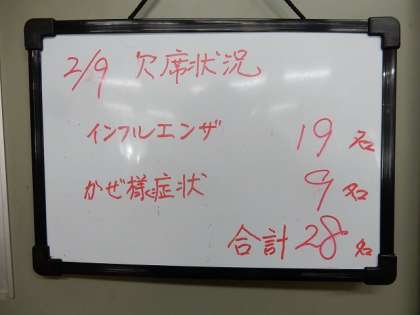 2/9 欠席状況
インフルエンザ 19名
かぜ様症状 9名
合計28名